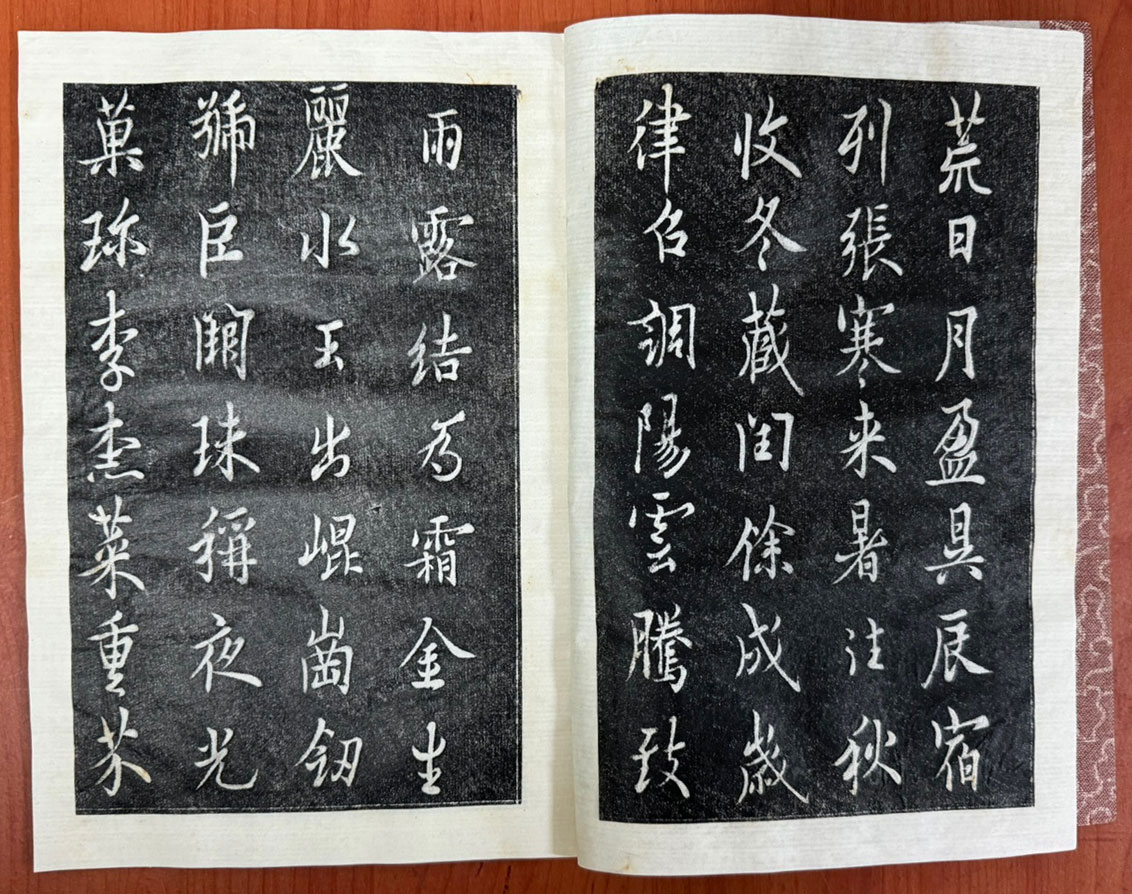 荒日月盈昃辰宿
列張寒来暑往秋
收冬蔵閏餘成歲
律召調陽雲騰致
雨露結為霜金生
麗水玉出崐崗釼
號巨闕珠稱夜光
菓珎李柰菜重芥